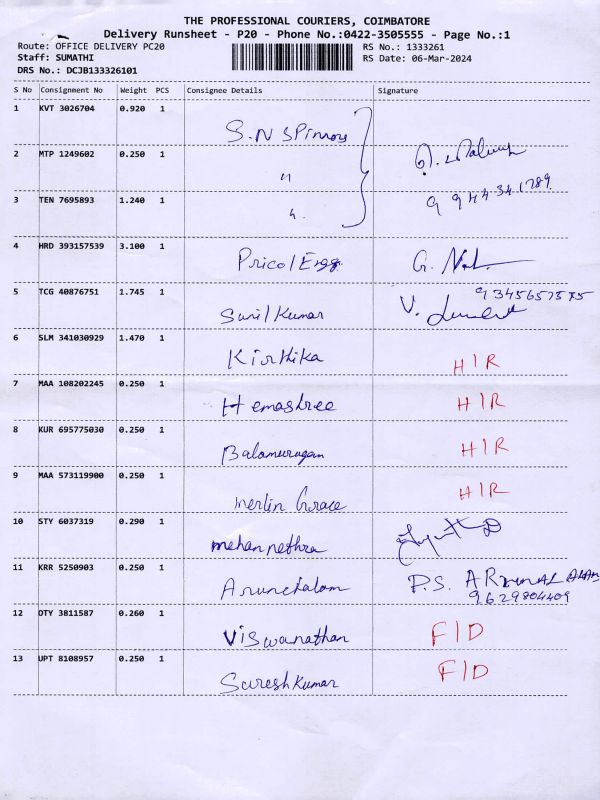 THE PROFESSIONAL COURIERS, COIMBATORE
Delivery Runsheet - P20 - Phone No.:0422-3505555 - Page No.:1
Route: OFFICE DELIVERY PC20 RS No.: 1333261
Staff: SUMATHI RS Date: 06-Mar-2024
DRS No.: DCJB133326101
S No Consignment No Weight PCS Consignee Details Signature
1 KVT 3026704 0.920 1 S.N SPinners
2 MTP 1249602 0.250 1 "
3 TEN 7695893 1.240 1 " 9944341789
4 HRD 393157539 3.100 1 Pricol Engg. G.
5 TCG 40876751 1.745 1 Sunil Kumar 9345657575 V.
6 SLM 341030929 1.470 1 Kirthika H/R
7 MAA 108202245 0.250 1 Hemashree H/R
8 KUR 695775030 0.250 1 Balamurugan H/R
9 MAA 573119900 0.250 1 Merlin Grace H/R
10 STY 6037319 0.290 1 mehannethra
11 KRR 5250903 0.250 1 Arunchalam P.S.
9629804409
12 OTY 3811587 0.260 1 Viswanathan F/D
13 UPT 8108957 0.250 1 Suresh Kumar F/D